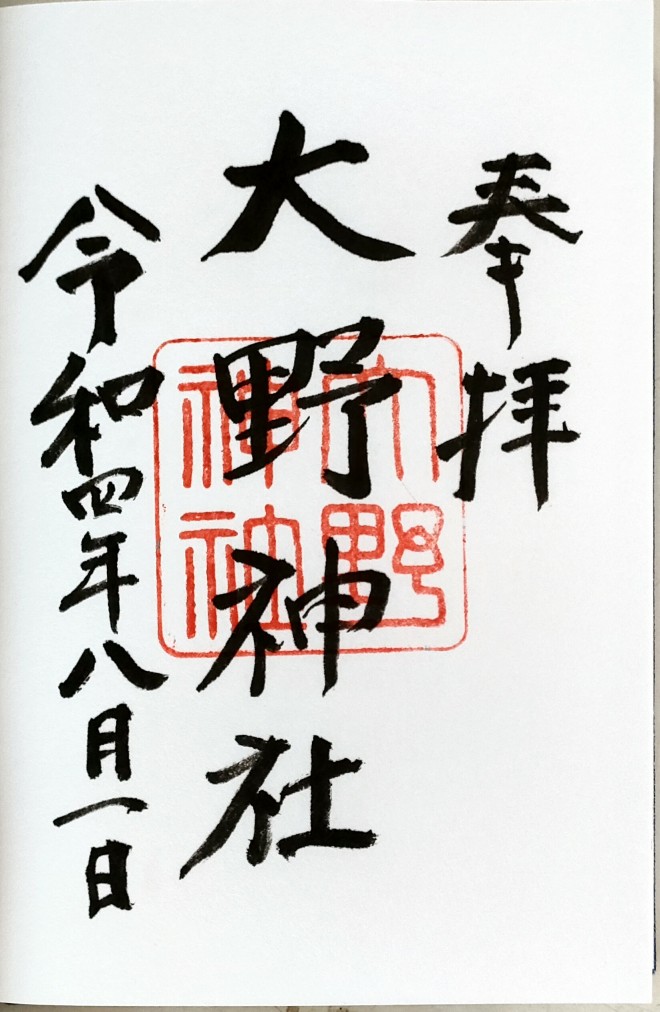 奉拝
大野神社
大野
神社
令和四年八月一日